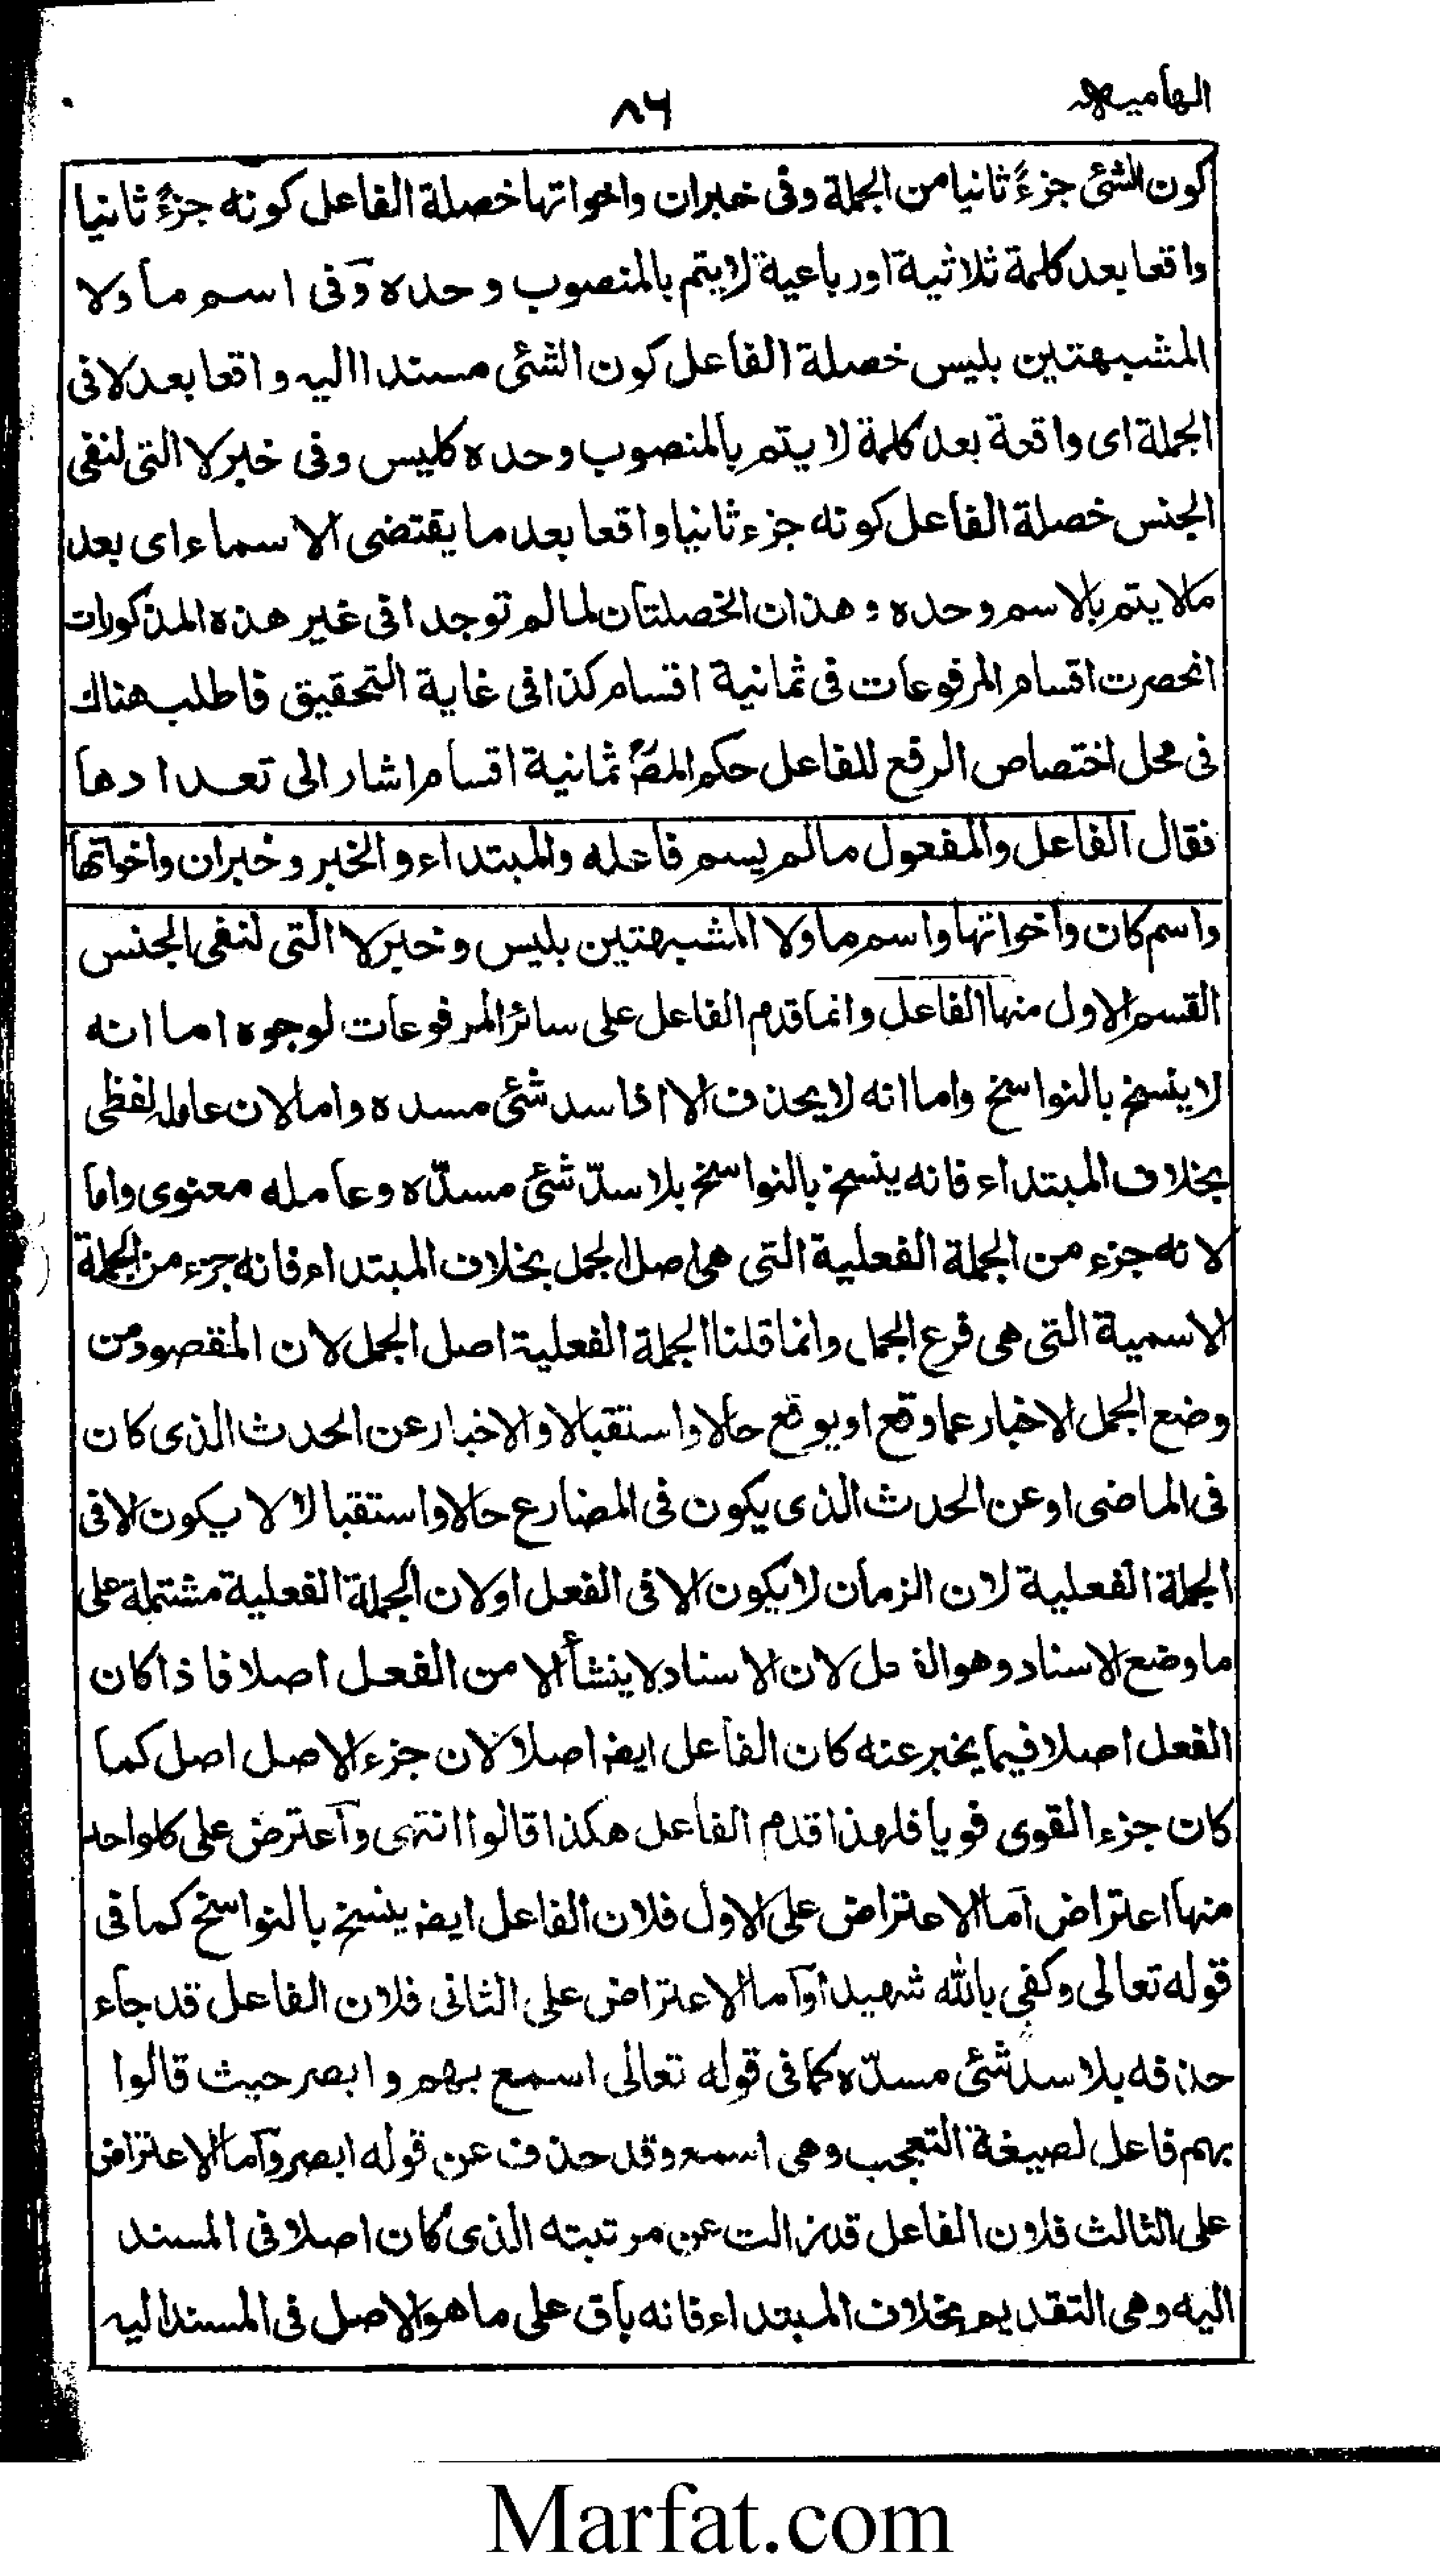 الهاميه
۸۶
كون الشئ جزءً ثانيا من الجملة وفى خبران واخواتها خصلة الفاعل كونه جزءً ثانيا
واقعا بعد كلمة ثلاثية اورباعية لايتم بالمنصوب وحده وفى اسم ما ولا
المشبهتين بليس خصلة الفاعل كون الشئى مسندا اليه واقعا بعد لا فى
الجملة اى واقعة بعد كلمة لا يتم بالمنصوب وحده كليس وفى خبر لا التى لنفى
الجنس خصلة الفاعل كونه جزء ثانيا واقعا بعد ما يقتضى الاسماء اى بعد
مالا يتم بالاسم وحده وهذان الخصلتان لما لم توجدا فى غير هذه المذكورات
انحصرت اقسام المرفوعات فى ثمانية اقسام كذا فى غاية التحقيق فاطلب هناك
فى محل اختصاص الرفع للفاعل حكم المصؒ ثمانية اقسام اشار الى تعدادها
فقال الفاعل والمفعول مالم يسم فاعله والمبتداء والخبر وخبران واخواتها
واسم كان واخواتها واسم ما ولا المشبهتين بليس وخبر لا التى لنفى الجنس
القسم الاول منها الفاعل وانما قدم الفاعل على سائر المرفوعات لوجوه اما انه
لا ينسخ بالنواسخ واما انه لايحذف الا اذا سد شئى مسده واما لان عامله لفظى
بخلاف المبتداء فانه ينسخ بالنواسخ بلا سدّ شئى مسدّه وعامله معنوى واما
لانه جزء من الجملة الفعلية التى هى اصل الجمل بخلاف المبتداء فانه جزء من الجملة
الاسمية التى هى فرع الجمل وانما قلنا الجملة الفعلية اصل الجمل لان المقصود من
وضع الجمل الاخبار عما وقع او يوقع حالا واستقبالا والاخبار عن الحدث الذى كان
فى الماضى او عن الحدث الذى يكون فى المضارع حالا واستقبالا لا يكون الا فى
الجملة الفعلية لان الزمان لا يكون الا فى الفعل او لان الجملة الفعلية مشتملة على
ما وضع الاسناد وهو لان الاسناد لا ينشأ الا من الفعل اصلا فاذا كان
الفعل اصلا فيما يخبر عنه كان الفاعل ايضا اصلا لان جزء الاصل اصل كما
كان جزء القوى قويا فلهذا قدم الفاعل هكذا قالوا انتهى وآعترض على كلواحد
منها اعتراض آما الاعتراض على الاول فلان الفاعل ايضا ينسخ بالنواسخ كما فى
قوله تعالى وكفى بالله شهيدا وآما الاعتراض على الثانى فلان الفاعل قد جاء
حذفه بلا سد شئى مسدّه كما فى قوله تعالى اسمع بهم وابصر حيث قالوا
بهم فاعل لصيغة التعجب وهى اسمع وقد حذف عن قوله ابصر وآما الاعتراض
على الثالث فلان الفاعل قد زالت عن مرتبته الذى كان اصلا فى المسند
اليه وهى التقديم بخلاف المبتداء فانه باق على ما هو الاصل فى المسند اليه
Marfat.com